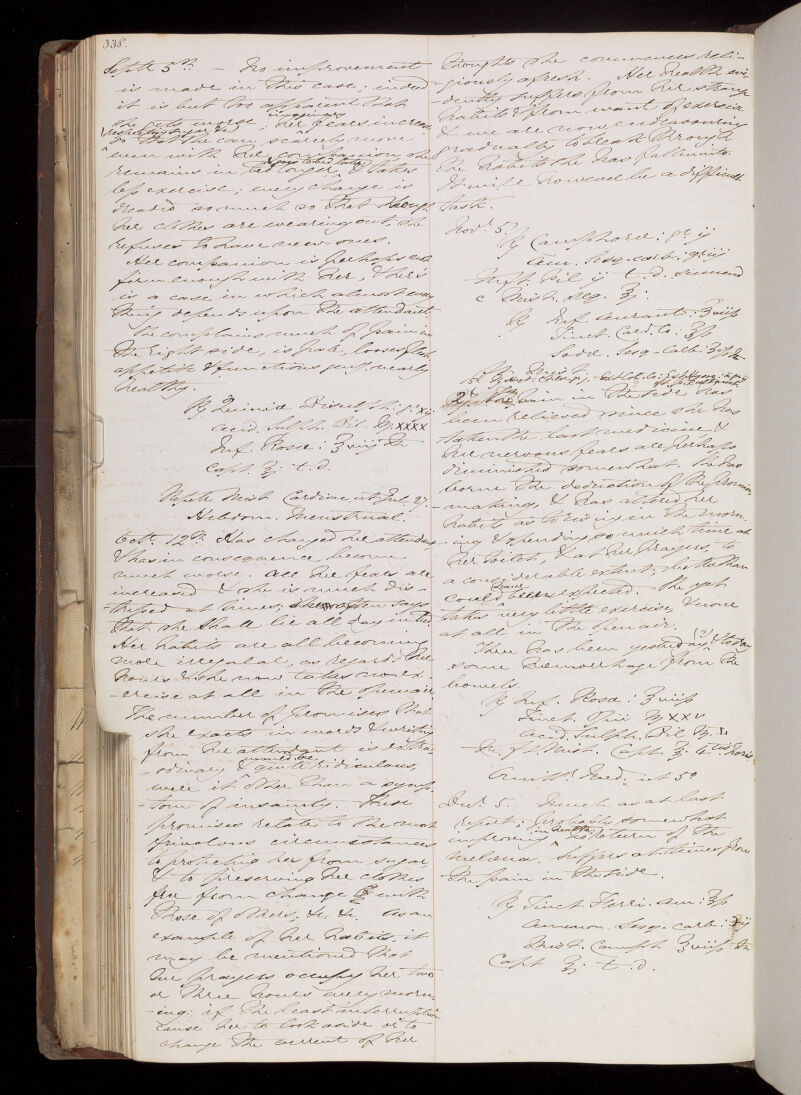 338.
Septr. 5th — No improvement
is made in this case; indeed
it is but too apparent that
she gets worse; her imaginary fears increase
respecting sugar &c
so that she can scarcely move
even with her companion she
remains in bed longer, goes to bed later; & takes
less exercise; every change is
dreaded so much so that though
her clothes are wearing out, she
refuses to have new ones.
Her companion is perhaps not
firm enough with her, & hers
is a case in which almost every
thing depends upon the attendant.
She complains much of pain in
the right side, is pale, loose flesh
appetite & functions pretty nearly
healthy.
℞ Quinæ Disulph: gr. xii
Acid. Sulph. Dil. ♏ xxxx
Inf. Rosæ: ℥viij M
Capt. ℥j t. d.
Repte Mist Cardiac. ut Jul. 27.
Hebdom. Menstrual.
Octr. 12th Has changed her attendant
& has in consequence become
much worse. All her fears are
increased & she is much dis-
-tressed at times, she often says
that she shall lie all day in bed.
Her habits are all becoming
more irregular, as regards her
hours & she now takes no ex-
-ercise at all in the open air.
The number of promises that
she exacts in words & writing
from her attendant is extra-
-ordinary & would be quite ridiculous,
were it other than a symp-
-tom of insanity. These
promises relate to the most
frivolous circumstances
to protecting her from sugar
& to preserving her clothes
free from change with
those of others, &c. &c. As an
example of her habits, it
may be mentioned that
her prayers occupy her two
or three hours every morn-
-ing: if the least interruption
cause her to look aside or to
change the current of her
thoughts she commences reli-
-giously afresh. Her health evi-
-dently suffers from her strange
habits & from want of exercise
& we are now endeavouring
gradually to break through
the habits she has fallen into.
It will however be a difficult
task.
Novr. 5.
℞ Camphoræ: gr ij
Am. Sesq. carb: gr iij
Mft. Pil ij t. d. sumend
c Mist. seq. ℥j.
℞ Inf. Aurant: ℥viiss
Tinct. Card. Co: ℥ss
Sodæ. Sesq. Carb: ʒij M
The pain in the side has
been relieved since she has
taken the last medicine &
her nervous fears are perhaps
diminished somewhat. She has
borne the dedication of the promise
-making, & has altered her
habits as to rising in the morn-
-ing & spending so much time at
her toilet, & at her prayers, to
a considerable extent, rather than
could have been expected. She yet
takes very little exercise, & none
at all in the open air.
There has been yesterday (?) & today
some hemorrhage from the
bowels.
℞ Inf. Rosæ: ℥viiss
Tinct. Opii ♏ xxv
Acid. Sulph. Dil ♏. xl
M. ft Mist. Capt. ℥j 4tis horis
Omitt. Med. ut 5o
Decr. 5. Much as at last
report; probably somewhat
improving in health; no return of the
melæna. Suffers at times from
the pain in the side.
℞ Tinct. Ferri. Am: ℥ss
Ammon. Sesq. carb: ʒij
Mist. Camph. ℥viiss M
Capt ℥j. t. d.